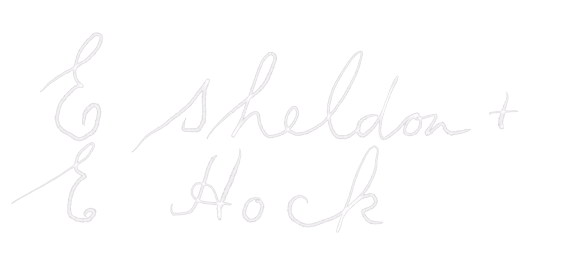 E Sheldon +
E Hock